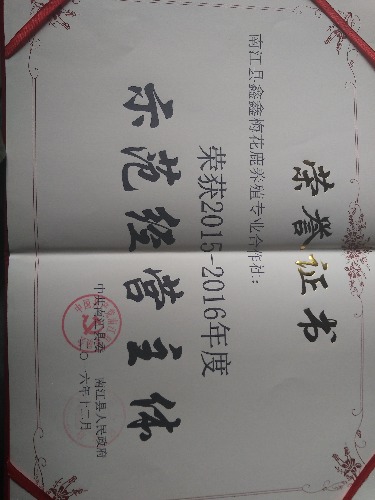 荣誉证书
南江县鑫鑫梅花鹿养殖专业合作社:
荣获2015-2016年度
示范经营主体
中共南江县委 南江县人民政府
二〇一六年十二月